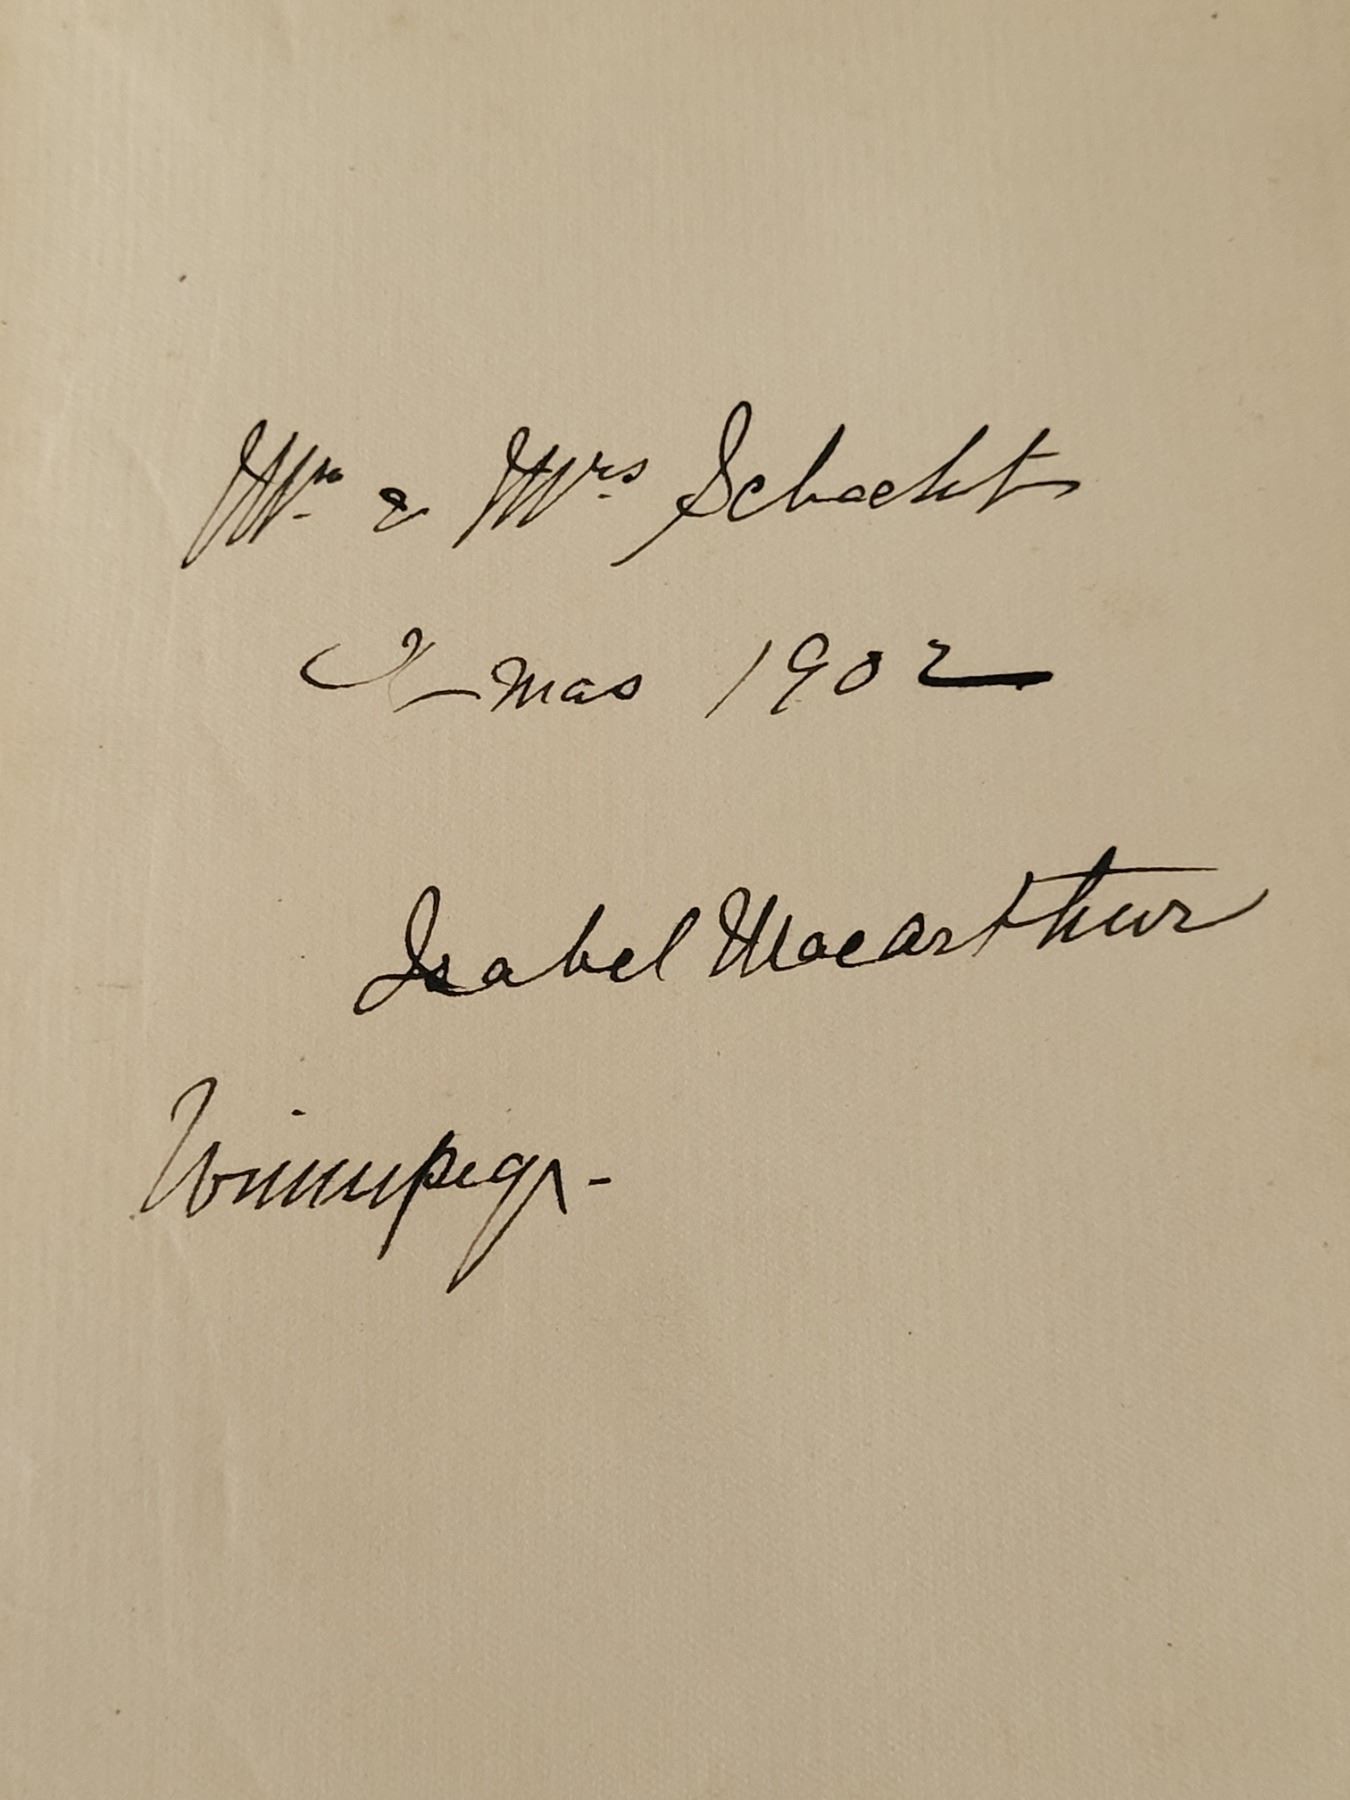 Mr. & Mrs. Schacht
X-mas 1902
Isabel Macarthur
Winnipeg -